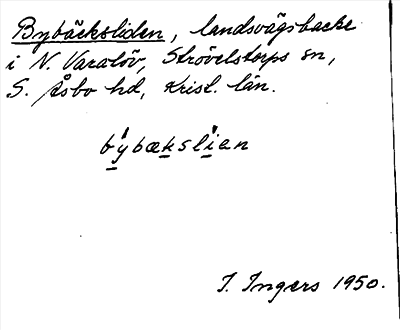 Bybäcksliden, landsvägsbacke
i N. Varalöv, Strövelstorps sn,
S. Åsbo hd, Krist. län.
býbækslían
I. Ingers 1950.